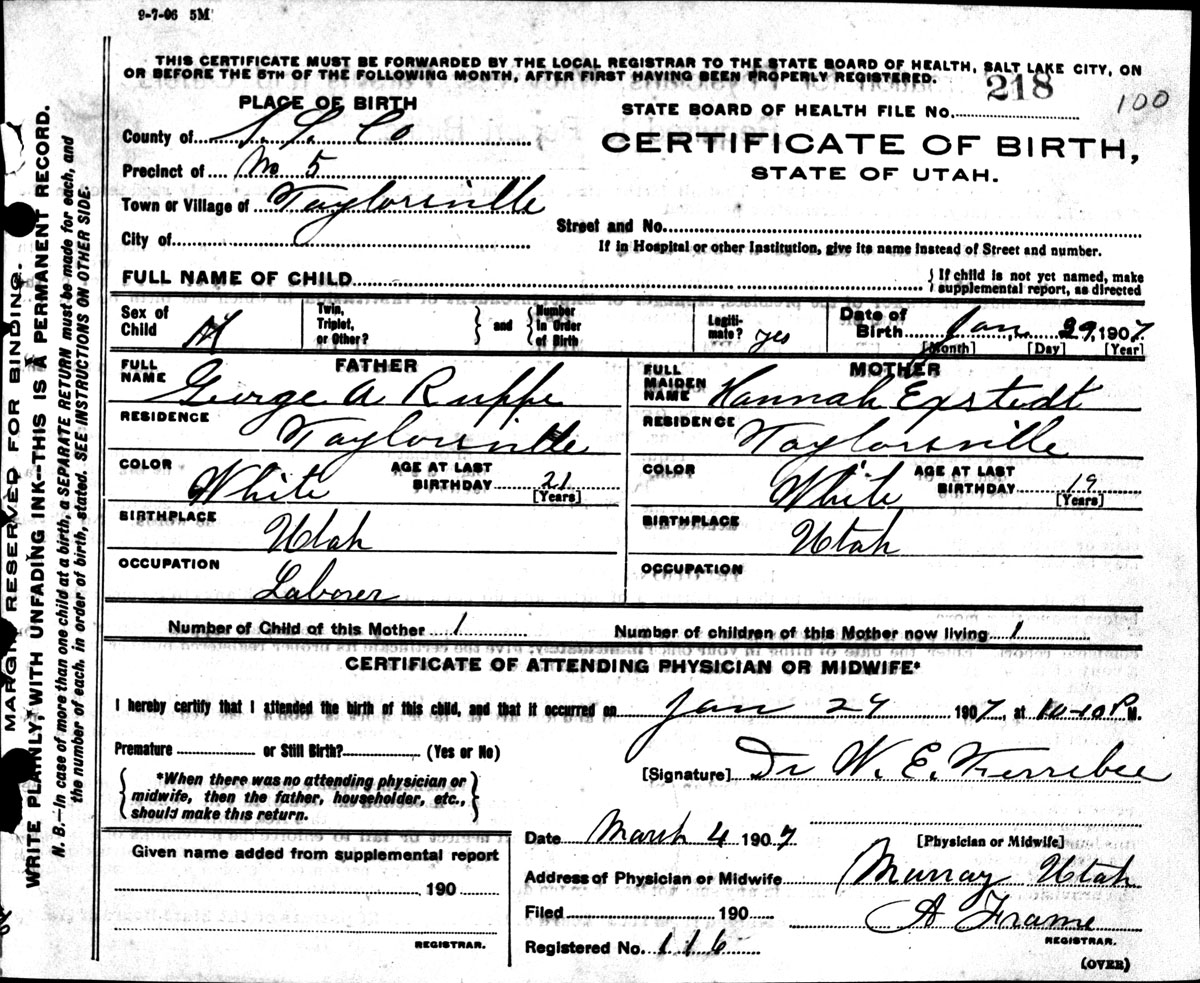 9-7-06 5M
THIS CERTIFICATE MUST BE FORWARDED BY THE LOCAL REGISTRAR TO THE STATE BOARD OF HEALTH, SALT LAKE CITY, ON
OR BEFORE THE 5TH OF THE FOLLOWING MONTH, AFTER FIRST HAVING BEEN PROPERLY REGISTERED.
PLACE OF BIRTH
County of S. L. Co
Precinct of No 5
Town or Village of Taylorsville
City of
218
100
STATE BOARD OF HEALTH FILE No.
CERTIFICATE OF BIRTH,
STATE OF UTAH.
Street and No.
If in Hospital or other Institution, give its name instead of Street and number.
FULL NAME OF CHILD
If child is not yet named, make
supplemental report, as directed
Sex of Child M
Twin, Triplet, or Other?
and
Number in Order of Birth
Legitimate? yes
Date of Birth Jan 29, 1907
[Month] [Day] [Year]
FATHER
FULL NAME George A Ruppe
RESIDENCE Taylorsville
COLOR White AGE AT LAST BIRTHDAY 21
[Years]
BIRTHPLACE Utah
OCCUPATION Laborer
MOTHER
FULL MAIDEN NAME Hannah Exstedt
RESIDENCE Taylorsville
COLOR White AGE AT LAST BIRTHDAY 19
[Years]
BIRTHPLACE Utah
OCCUPATION
Number of Child of this Mother 1
Number of children of this Mother now living 1
CERTIFICATE OF ATTENDING PHYSICIAN OR MIDWIFE*
I hereby certify that I attended the birth of this child, and that it occurred on Jan 29 1907, at 10-10 P M.
Premature or Still Birth? (Yes or No)
*When there was no attending physician or
midwife, then the father, householder, etc.,
should make this return.
[Signature] Dr W. E. Ferrebee
Date March 4 1907
[Physician or Midwife]
Address of Physician or Midwife Murray Utah
Filed 190
A Frame
REGISTRAR.
Registered No. 116
(OVER)
Given name added from supplemental report
190
REGISTRAR.
MARGIN RESERVED FOR BINDING.
WRITE PLAINLY, WITH UNFADING INK--THIS IS A PERMANENT RECORD.
N. B.--In case of more than one child at a birth, a SEPARATE RETURN must be made for each, and
the number of each, in order of birth, stated. SEE INSTRUCTIONS ON OTHER SIDE.